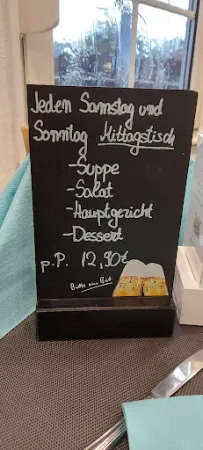 Jeden Samstag und
Sonntag Mittagstisch
-Suppe
-Salat
-Hauptgericht
-Dessert
p.P. 12,90€
Bitte ein Bit